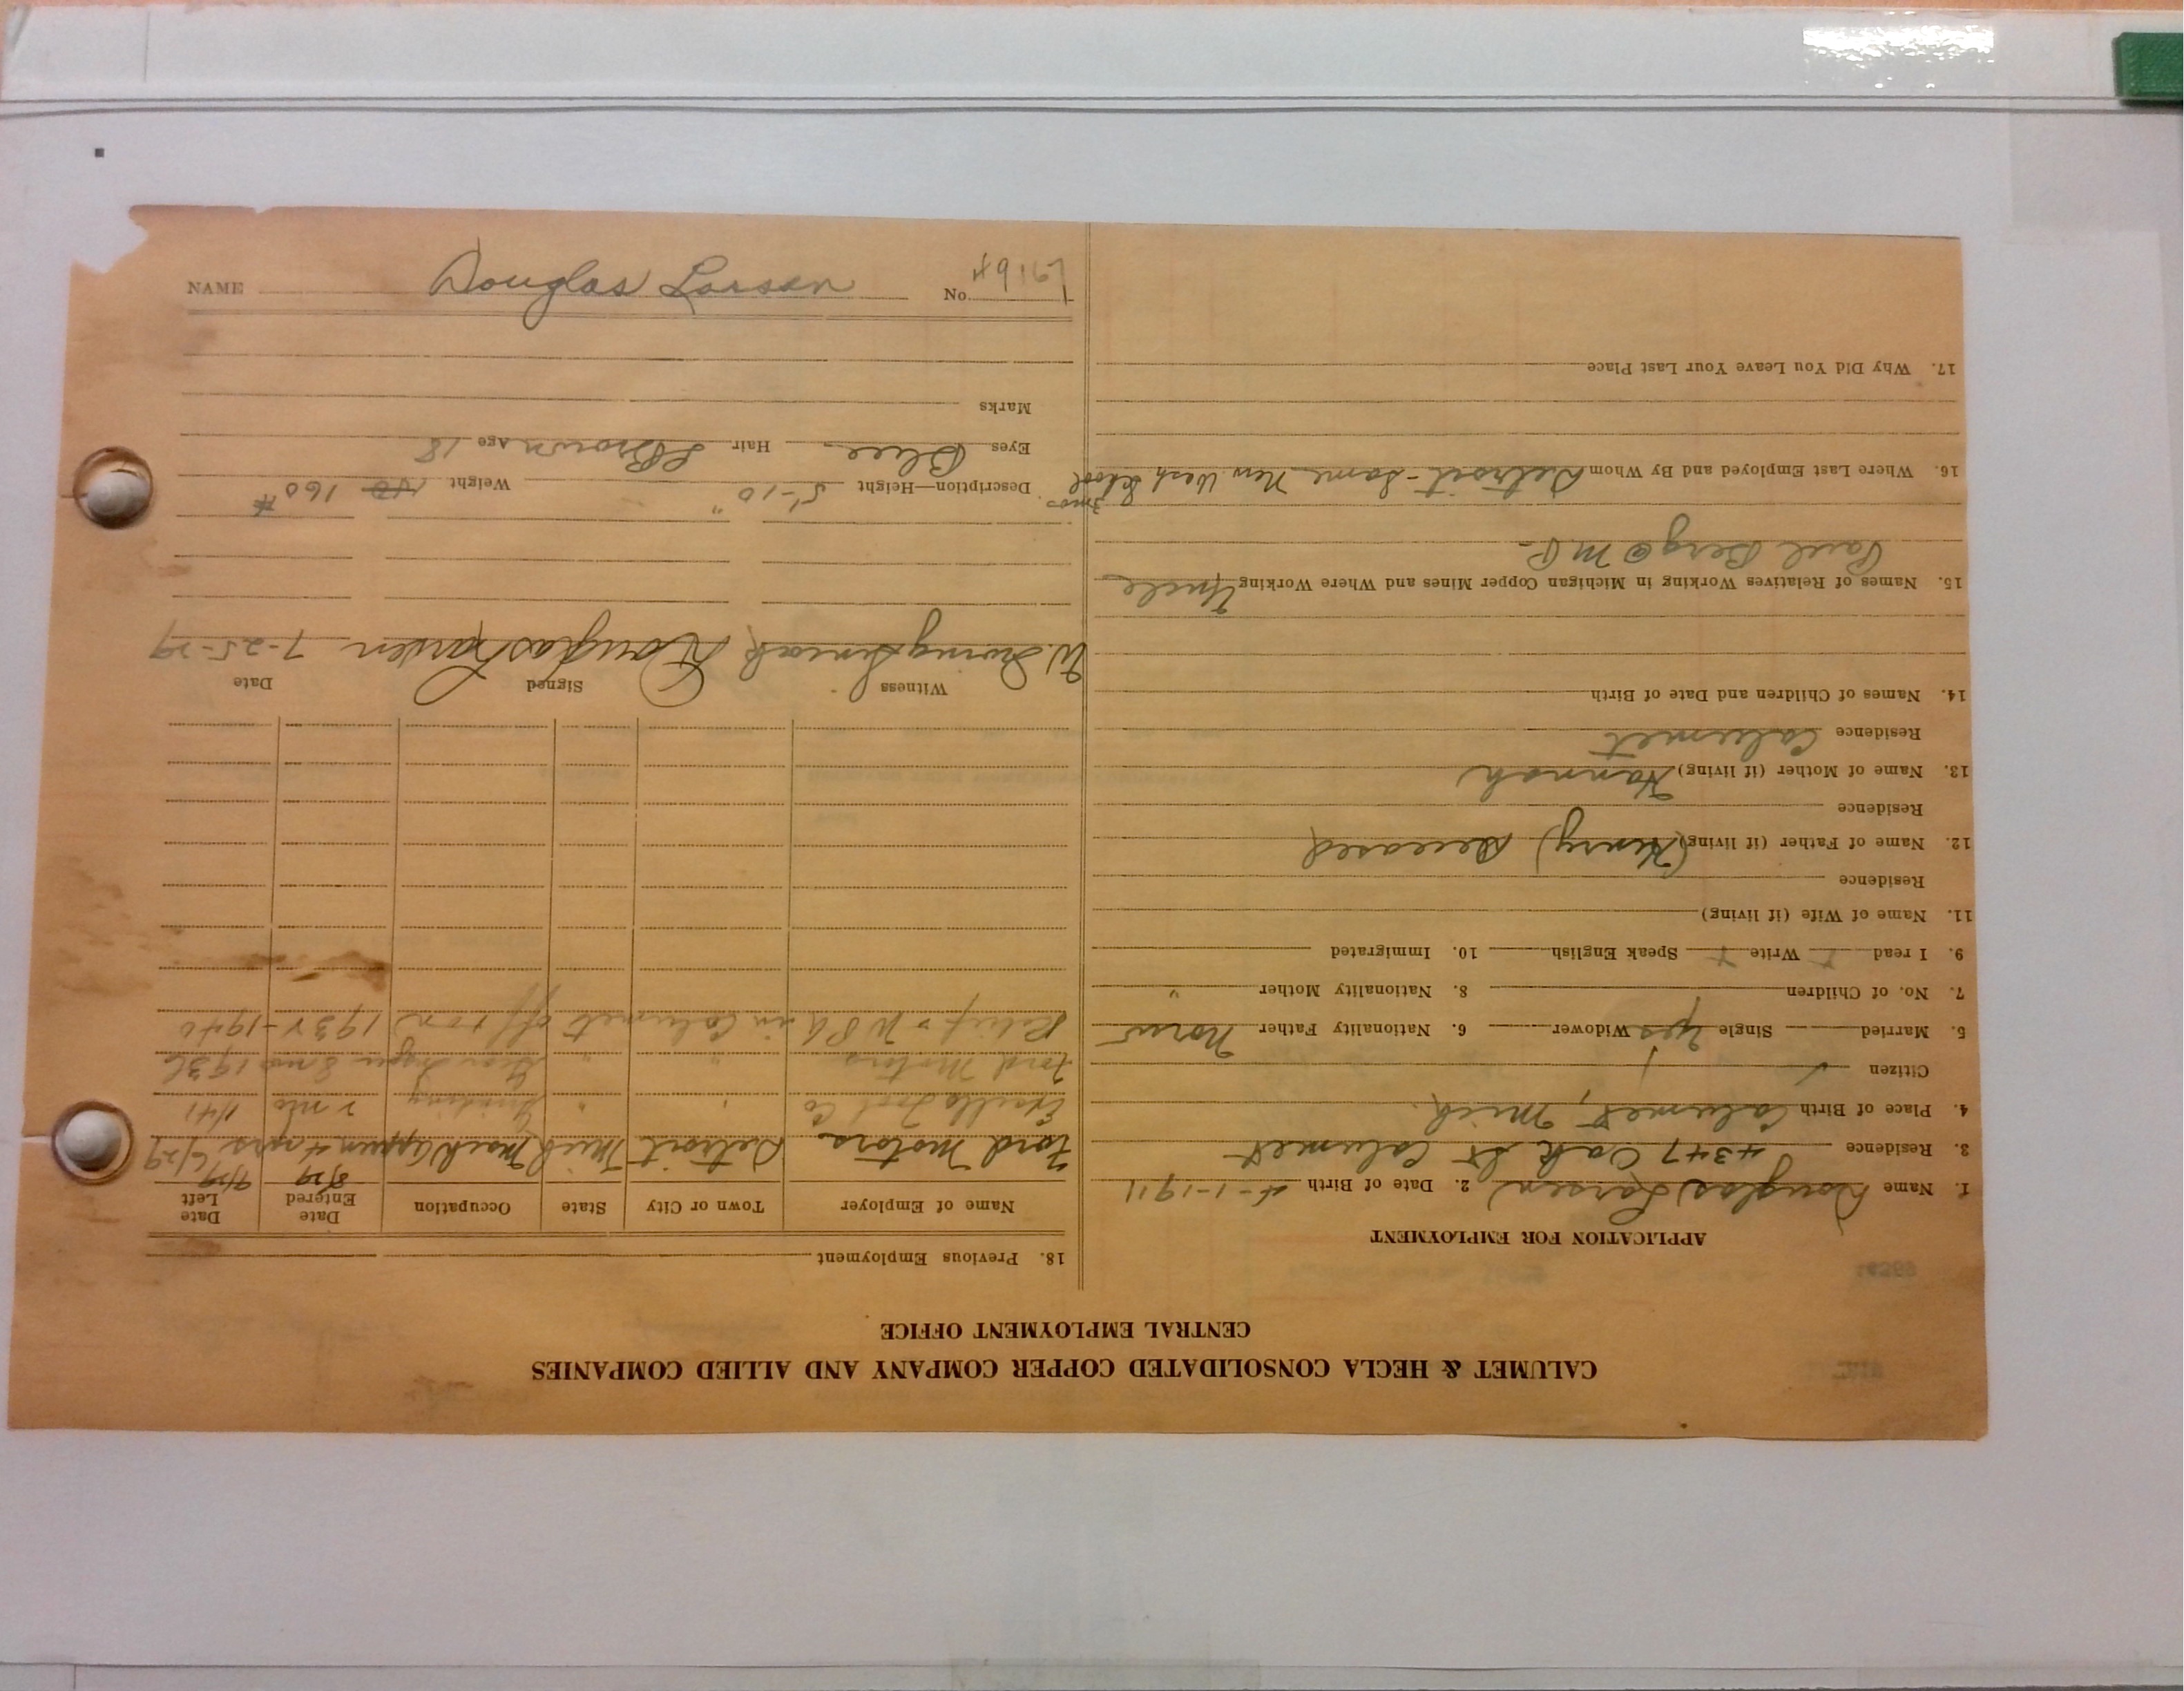 CALUMET & HECLA CONSOLIDATED COPPER COMPANY AND ALLIED COMPANIES
CENTRAL EMPLOYMENT OFFICE
APPLICATION FOR EMPLOYMENT
1. Name Douglas Larsen 2. Date of Birth 4-1-1911
3. Residence 4347 Oak St Calumet
4. Place of Birth Calumet, Mich.
Citizen ✓
5. Married Single Yes Widower 6. Nationality Father Norw
7. No. of Children 8. Nationality Mother "
9. I read Write Speak English 10. Immigrated
11. Name of Wife (if living)
Residence
12. Name of Father (if living) (Henry) Deceased
Residence
13. Name of Mother (if living) Hannah
Residence Calumet
14. Names of Children and Date of Birth
15. Names of Relatives Working in Michigan Copper Mines and Where Working Uncle
Paul Berg @ M
16. Where Last Employed and By Whom Detroit - Same
3 mos
17. Why Did You Leave Your Last Place
18. Previous Employment
Name of Employer Town or City State Occupation Date Entered Date Left
8/29 9/29
Ford Motors Detroit Mich Mach appren 4 mos 6/29
Excello Tool Co " " Grinding 2 mo 1/41
Ford Motors " " 8 mo 1936
Relief & WPA in Calumet off & on 1940
Witness Signed Date
W. Irving Douglas Larsen 7-25-29
Description—Height 5'-10" Weight 160 #
Eyes Blue Hair Brown Age 18
Marks
NAME Douglas Larsen No. 49167